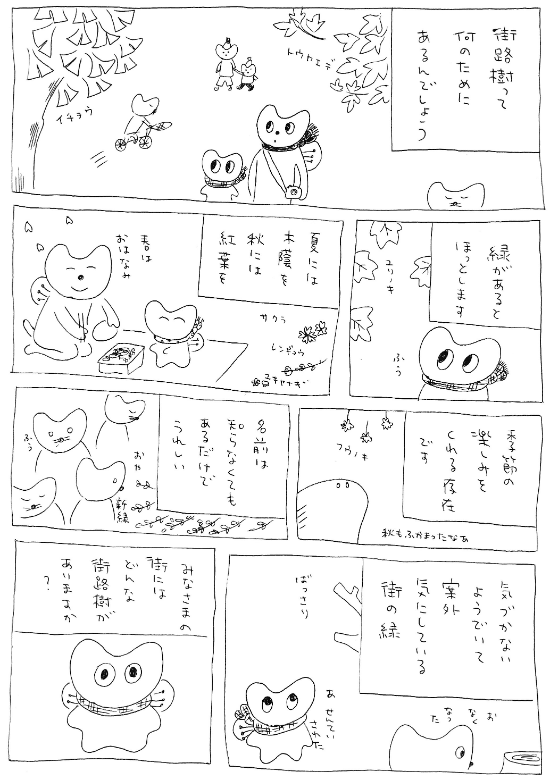 街路樹って
何のために
あるんでしょう
トウカエデ
イチョウ
緑があると
ほっとします
ユリノキ
ふう
夏には
木蔭を
秋には
紅葉を
春は
おはなみ
サクラ
レンギョウ
ユキヤナギ
季節の
楽しみを
くれる存在
です
フウノキ
秋もふかまったなあ
名前は
知らなくても
あるだけで
うれしい
おや
新緑
ふぅ
気づかない
ようでいて
案外
気にしている
街の緑
お
なく
なっ
た
ばっさり
あ せんてい
された
みなさまの
街には
どんな
街路樹が
ありますか
?